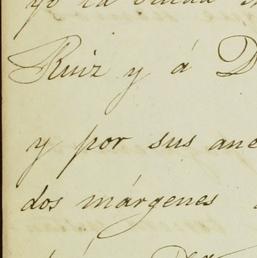 yo la
Ruiz y á D
y por sus ane
dos márgenes